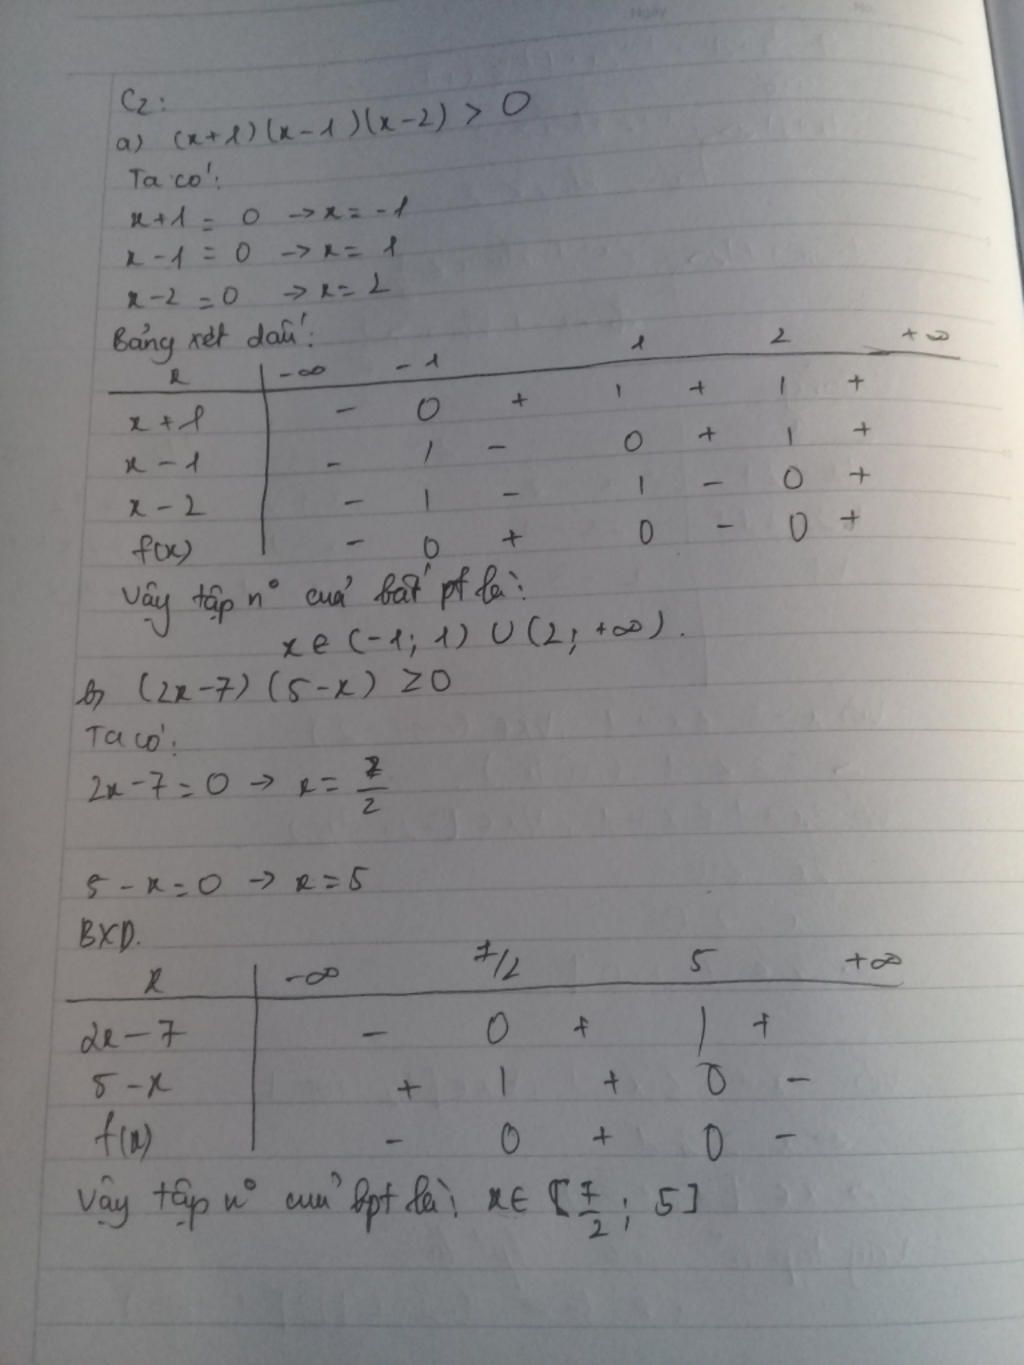 C2:
a) (x+1)(x-1)(x-2) > 0
Ta có:
x+1 = 0 → x = -1
x-1 = 0 → x = 1
x-2 = 0 → x = 2
Bảng xét dấu:
x | -∞ -1 1 2 +∞
x+1 | - 0 + | + | +
x-1 | - | - 0 + | +
x-2 | - | - | - 0 +
f(x) | - 0 + 0 - 0 +
Vậy tập n° của bất pt là:
x ∈ (-1; 1) ∪ (2; +∞).
b) (2x-7)(5-x) ≥ 0
Ta có:
2x-7 = 0 → x = 7/2
5-x = 0 → x = 5
BXD.
x | -∞ 7/2 5 +∞
2x-7 | - 0 + | +
5-x | + | + 0 -
f(x) | - 0 + 0 -
Vậy tập n° của bpt là: x ∈ [7/2; 5]